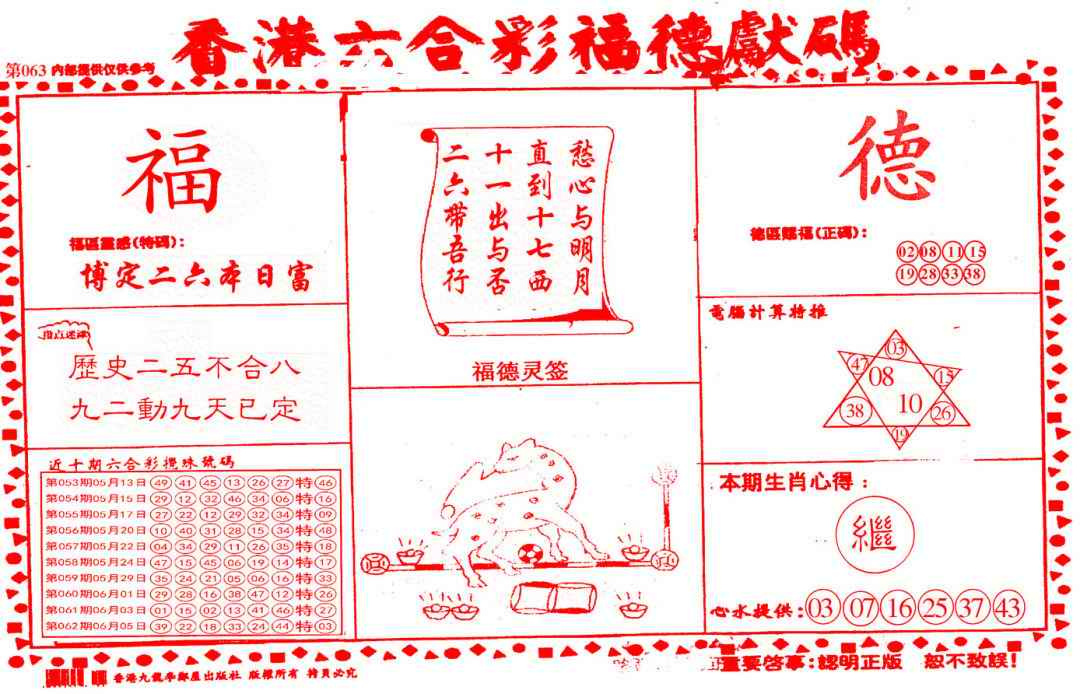 香港六合彩福德獻碼
第063 内部提供仅供参考
福
福區靈感(特碼):
博定二六本日富
指点迷津
歷史二五不合八
九二動九天已定
近十期六合彩攪珠號碼
第053期05月13日 49 41 45 13 26 27 特 46
第054期05月15日 29 12 32 46 34 06 特 16
第055期05月17日 27 22 12 29 32 34 特 09
第056期05月20日 10 40 31 28 15 34 特 48
第057期05月22日 04 34 29 11 26 35 特 18
第058期05月24日 47 15 45 06 19 14 特 17
第059期05月29日 35 24 21 05 06 16 特 33
第060期06月01日 29 28 16 38 47 12 特 26
第061期06月03日 01 15 02 13 41 46 特 27
第062期06月05日 39 22 18 33 24 44 特 03
愁心与明月
直到十七西
十一出与否
二六帶吾行
福德灵签
德
德區賜福(正碼):
02 08 11 15
19 28 33 38
電腦計算特推
03
47 08 15
38 10 26
19
本期生肖心得:
繼
心水提供: 03 07 16 25 37 43
重要啓事:認明正版 恕不致誤!
香港九龍學鄰屋出版社 版權所有 特員必究